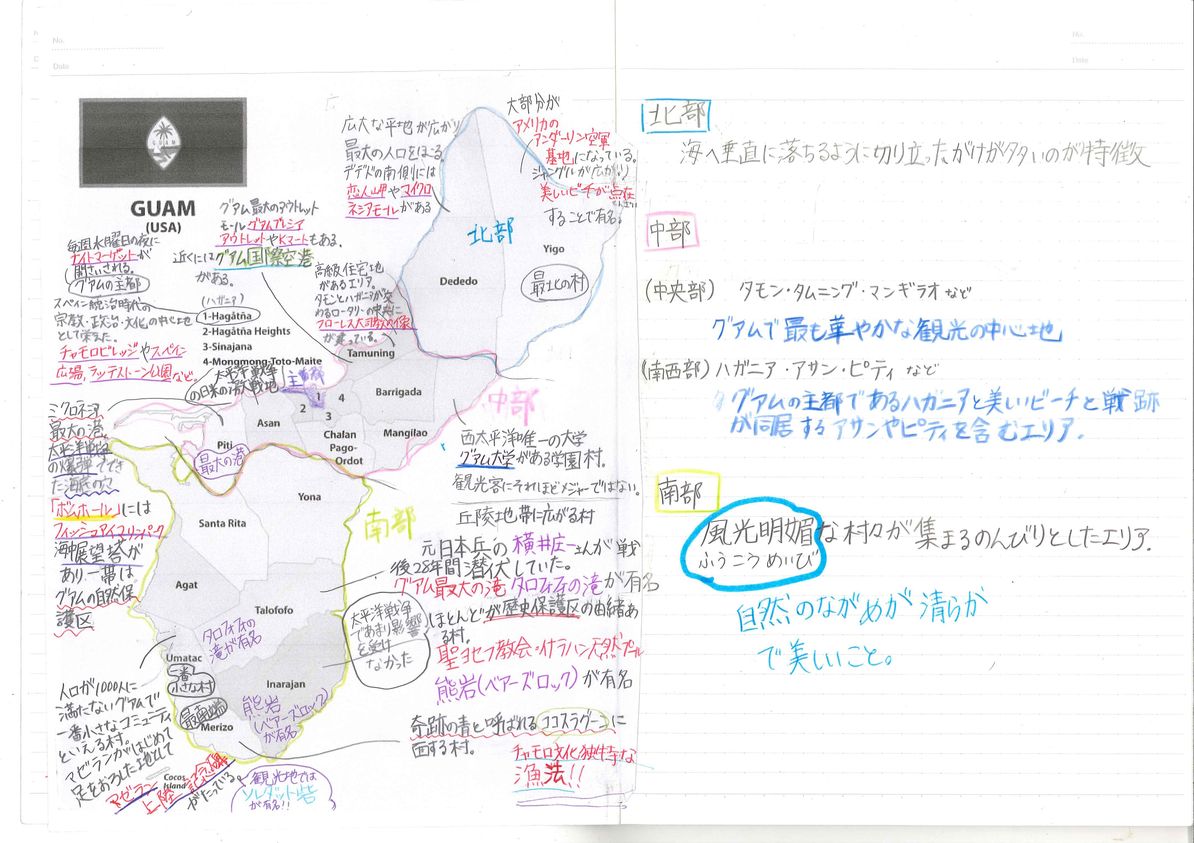 No.
Date
GUAM
GUAM
(USA)
広大な平地が広がり
最大の人口をほこる。
デデドの南側には
恋人岬やマイクロ
ネシアモールがある
大部分が
アメリカの
アンダーソン空軍
基地になっている。
ジャングルが広がり
美しいビーチが点在
することで有名。
北部
Yigo
最北の村
Dededo
グアム最大のアウトレット
モールグアムプレミア
アウトレットやKマートもある。
近くにはグアム国際空港
がある。
毎週水曜日の夜に
ナイトマーケットが
開さいされる。
グアムの主都
スペイン統治時代の
宗教・政治・文化の中心地
として栄えた。
チャモロビレッジやスペイン
広場,ラッテストーン公園など。
(ハガニア)
1-Hagåtña
2-Hagåtña Heights
3-Sinajana
4-Mongmong-Toto-Maite
太平洋戦争
の日米の激戦地
高級住宅地
があるエリア。
タモンとハガニアが交
わるロータリーの中央に
フローレス大司教の像
が建っている。
Tamuning
主都
Barrigada
中部
1
4
2
3
Asan
Piti
最大の港
Chalan
Pago-
Ordot
Mangilao
ミクロネシア
最大の港
太平洋戦争
の爆弾でできた
海底の穴
「ボムホール」には
フィッシュアイマリンパーク
海中展望塔が
あり一帯は
グアムの自然保
護区
西太平洋唯一の大学
グアム大学がある学園村。
観光客にそれほどメジャーではない。
Yona
丘陵地帯に広がる村
Santa Rita
南部
元日本兵の横井庄一さんが戦
後28年間潜伏していた。
グアム最大の滝 タロフォフォの滝が有名
Agat
Talofofo
タロフォフォの
滝が有名
太平洋戦争
であまり影響
を受け
なかった
ほとんどが歴史保護区の由緒あ
る村。
聖ヨセフ教会・イナラハン天然プール
熊岩(ベアーズロック)が有名
Umatac
一番
小さな村
Inarajan
熊岩
(ベアーズロック)
が有名
最南端
Merizo
奇跡の青と呼ばれるココスラグーンに
面する村。
チャモロ文化独特な
漁法!!
人口が1000人に
満たないグアムで
一番小さなコミュニティ
といえる村。
マゼランがはじめて
足をおろした地として
マゼラン
上陸記念碑
がたっている。
Cocos
Island
観光地では
ソレダット砦
が有名!!
北部
海へ垂直に落ちるように切り立ったがけが多いのが特徴
中部
(中央部) タモン・タムニング・マンギラオなど
グアムで最も華やかな観光の中心地
(南西部) ハガニア・アサン・ピティなど
グアムの主都であるハガニアと美しいビーチと戦跡
が同居するアサンやピティを含むエリア.
南部
風光明媚な村々が集まるのんびりとしたエリア.
ふうこうめいび
自然のながめが清らか
で美しいこと。
No.
Date